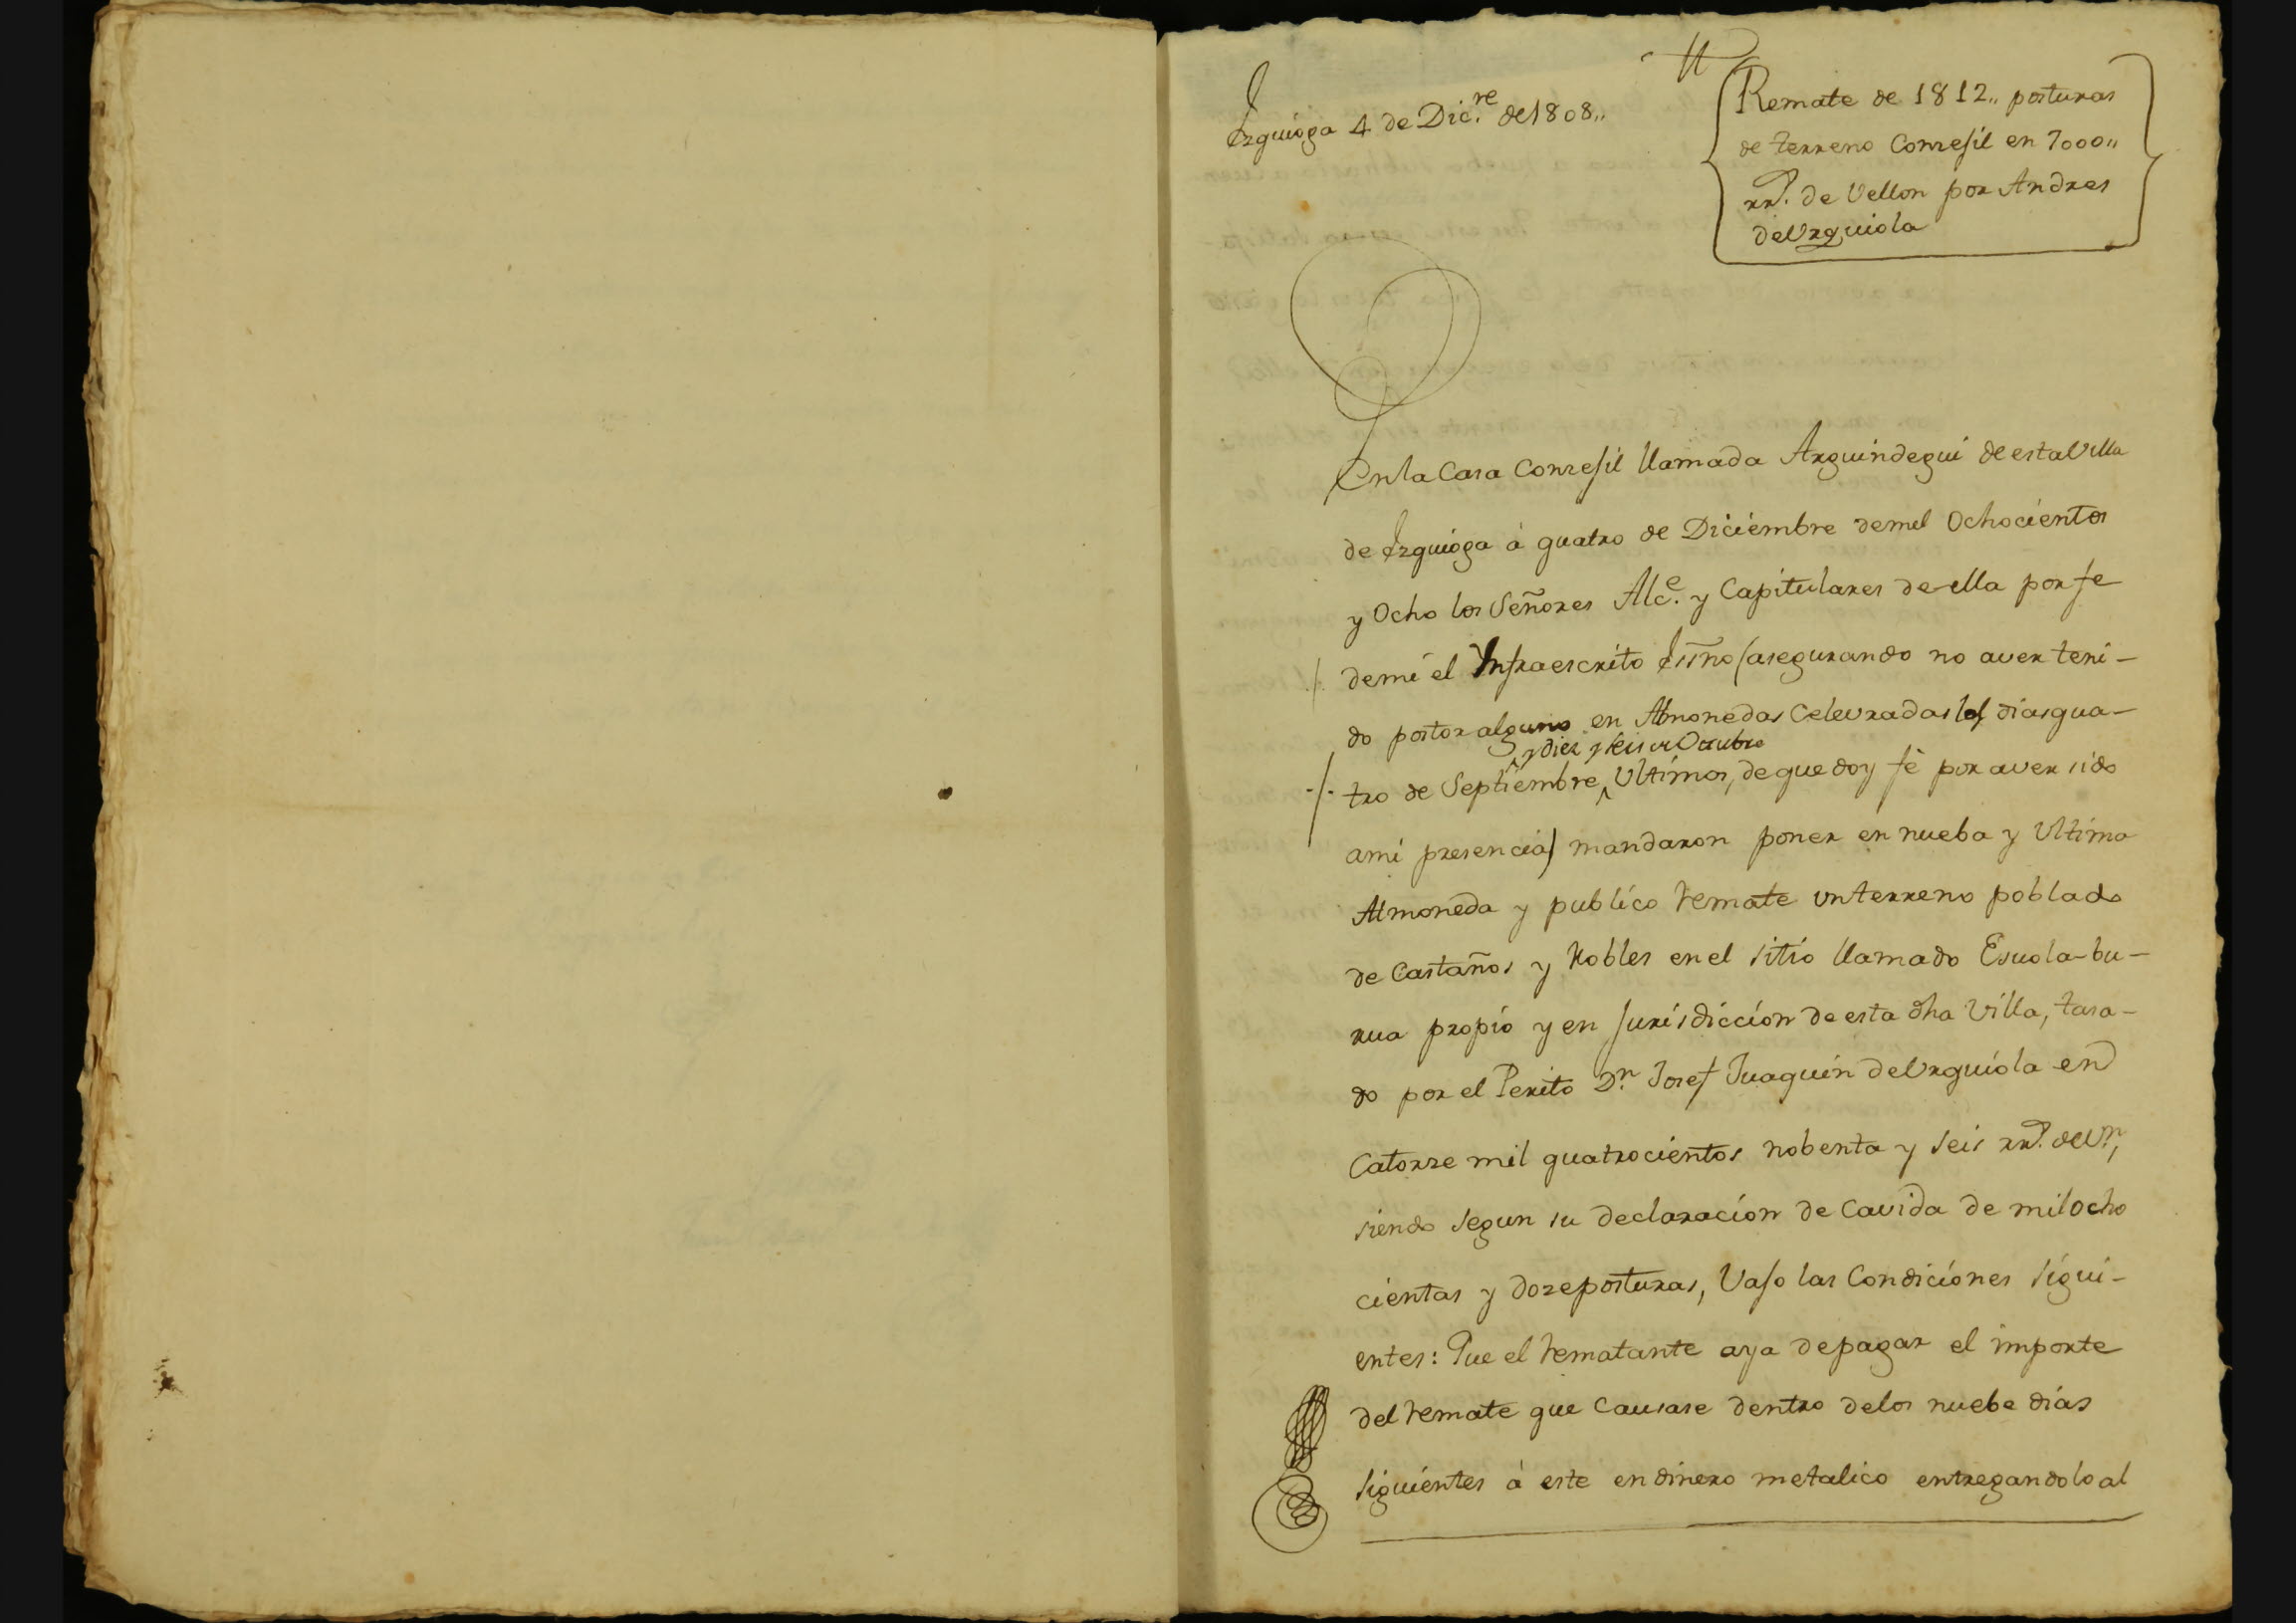 Ezquioga 4 de Dic.re de 1808,,
Remate de 1812,, posturas
de terreno Concejil en 7000,,
rrs. de Vellon por Andres
de Urquiola
En la Casa Concejil llamada Arguindegui de esta Villa
de Ezquioga à quatro de Diciembre de mil Ochocientos
y Ocho los Señores Alc.e y Capitulares de ella por fe
de mi el Ynfraescrito Esño (asegurando no aver teni-
do postor alguno en Almonedas Celevradas los dias qua-
y diez y seis de Octubre
tro de Septiembre ^ Ultimos, de que doy fè por aver sido
a mi presencia) mandaron poner en nueba y Ultima
Almoneda y publico remate un terreno poblado
de Castaños y Robles en el sitio llamado Esuola-bu-
rua propio y en Jurisdiccion de esta dha Villa, tasa-
do por el Perito Dn. Josef Juaquin de Urquiola en
Catorze mil quatrocientos nobenta y seis rrs. de Vn.,
siendo segun su declaracion de Cavida de mil Ocho
cientas y doze posturas, Vajo las Condiciones Sigui-
entes: Que el rematante aya de pagar el importe
del remate que Causase dentro de los nuebe dias
Siguientes à este en dinero metalico entregandolo al